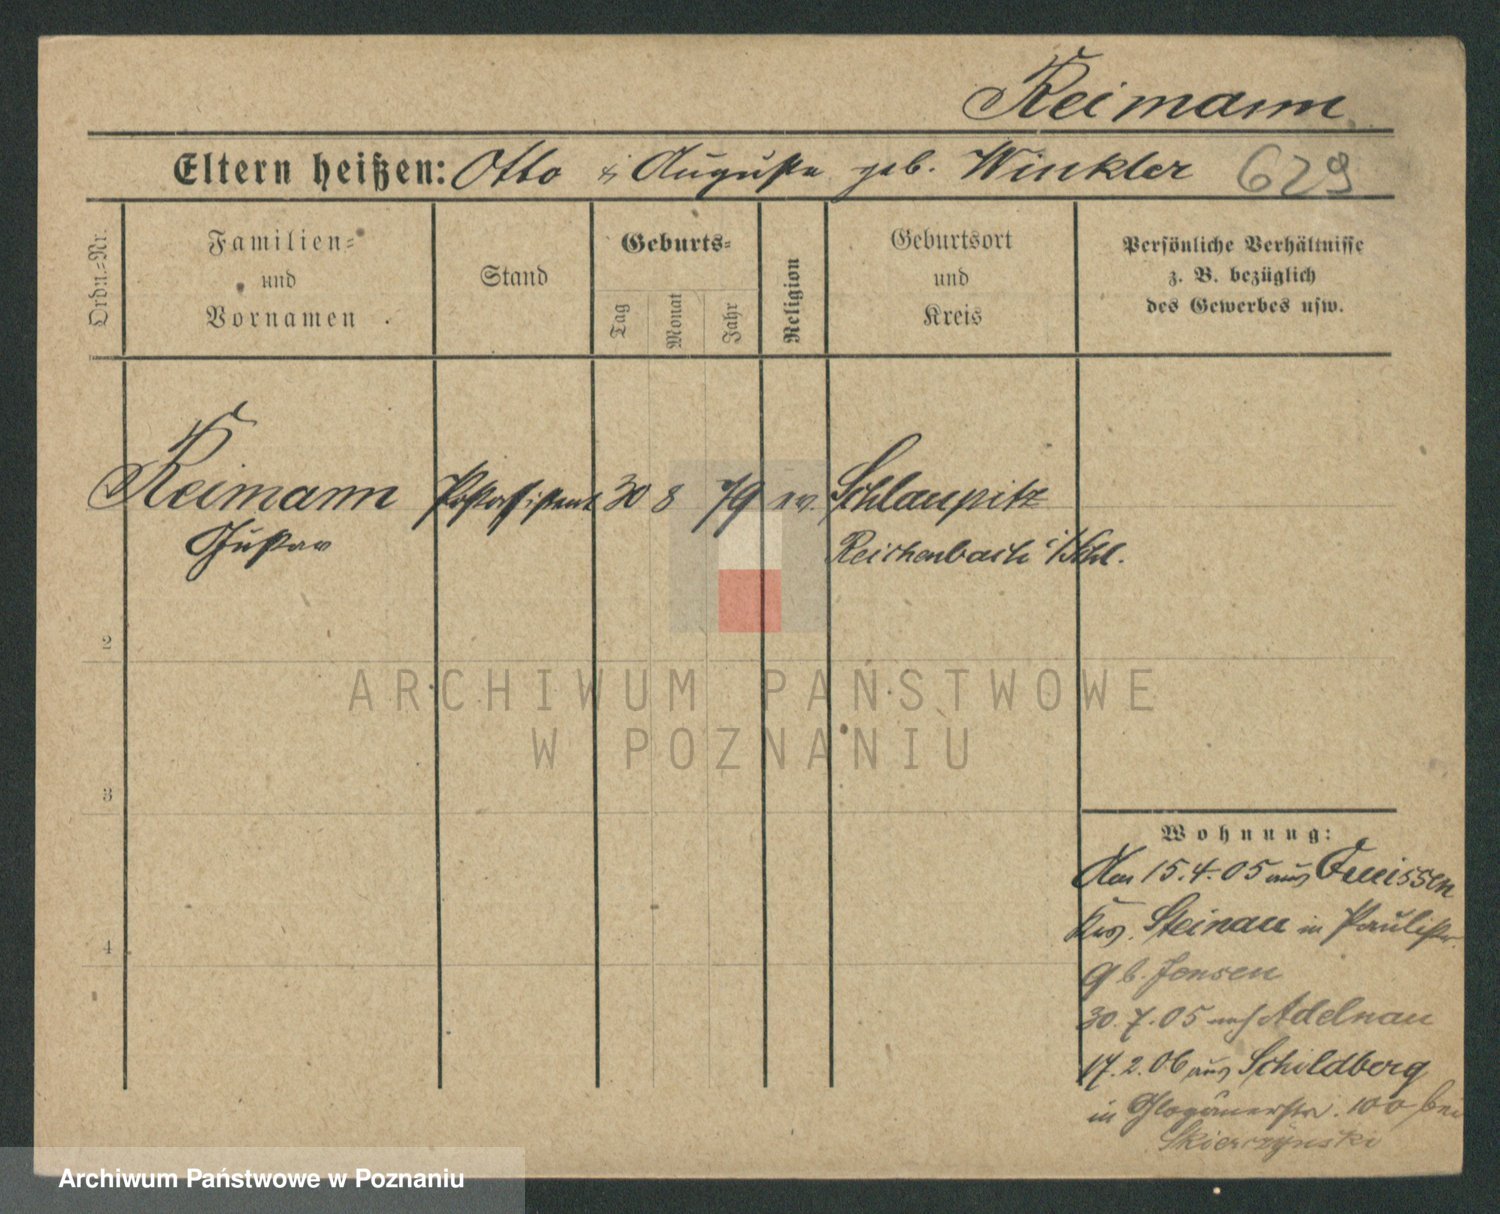 Reimann
Eltern heißen: Otto & Auguste geb. Winkler 629
Ordn.=Nr.
Familien=
und
Vornamen
Stand
Geburts=
Tag
Monat
Jahr
Religion
Geburtsort
und
Kreis
Persönliche Verhältnisse
z. B. bezüglich
des Gewerbes usw.
Reimann Postassistent 30 8 79 ev. Schlaupitz
Gustav Reichenbach i/Schl.
2
3
4
Wohnung:
Am 15.4.05 aus
Krs. Steinau in Paulistr.
9 b. Jensen
30.7.05 auf Adelnau
17.2.06 aus Schildberg
in Glogauerstr. 100 bei
Skierzynski
ARCHIWUM PAŃSTWOWE
W POZNANIU
Archiwum Państwowe w Poznaniu